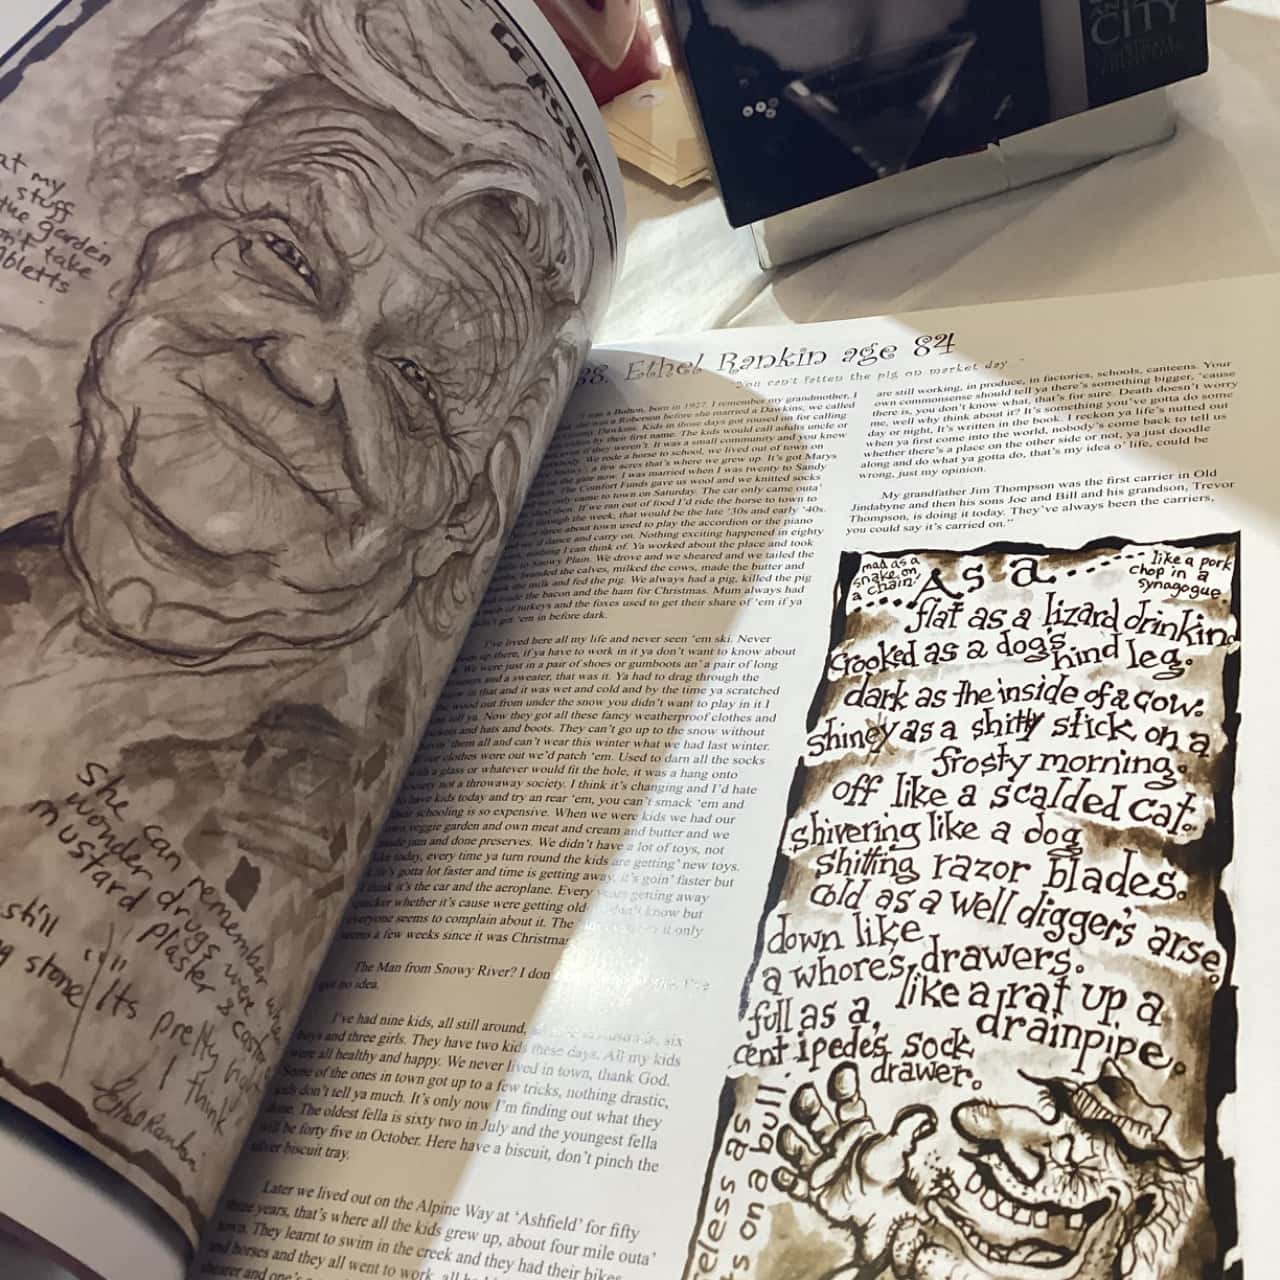 CLASSIC
at my
stuff
the garden
n't take
abletts
she can remember when
wonder drugs were
mustard plaster & castor
still
g stone
"Its pretty
I think
Ethel Rankin
CITY
38. Ethel Rankin age 84
You can't fatten the pig on market day
was a Bolton, born in 1927. I remember my grandmother, I
she was a Roberson before she married a Dawkins, we called
Dawkins. Kids in those days got roused on for calling
by their first name. The kids would call adults uncle or
even if they weren't. It was a small community and you knew
We rode a horse to school, we lived out of town on
a few acres that's where we grew up. It's got Marys
on the gate now. I was married when I was twenty to Sandy
The Comfort Funds gave us wool and we knitted socks
only came to town on Saturday. The car only came outa'
then. If we ran out of food I'd ride the horse to town to
through the week, that would be the late '30s and early '40s.
or three about town used to play the accordion or the piano
and we'd dance and carry on. Nothing exciting happened in eighty
nothing I can think of. Ya worked about the place and took
to Snowy Plain. We drove and we sheared and we tailed the
branded the calves, milked the cows, made the butter and
the milk and fed the pig. We always had a pig, killed the pig
made the bacon and the ham for Christmas. Mum always had
of turkeys and the foxes used to get their share of 'em if ya
didn't get 'em in before dark.
I've lived here all my life and never seen 'em ski. Never
up there, if ya have to work in it ya don't want to know about
We were just in a pair of shoes or gumboots an' a pair of long
and a sweater, that was it. Ya had to drag through the
in that and it was wet and cold and by the time ya scratched
the wood out from under the snow you didn't want to play in it I
tell ya. Now they got all these fancy weatherproof clothes and
and hats and boots. They can't go up to the snow without
'them all and can't wear this winter what we had last winter.
our clothes wore out we'd patch 'em. Used to darn all the socks
with a glass or whatever would fit the hole, it was a hang onto
society not a throwaway society. I think it's changing and I'd hate
to have kids today and try an rear 'em, you can't smack 'em and
schooling is so expensive. When we were kids we had our
own veggie garden and own meat and cream and butter and we
made jam and done preserves. We didn't have a lot of toys, not
like today, every time ya turn round the kids are getting' new toys.
Life's gotta lot faster and time is getting away, it's goin' faster but
I think it's the car and the aeroplane. Every years getting away
quicker whether it's cause were getting old I don't know but
everyone seems to complain about it. The it only
seems a few weeks since it was Christmas
The Man from Snowy River? I don
got no idea.
I've had nine kids, all still around, six
boys and three girls. They have two kids these days. All my kids
were all healthy and happy. We never lived in town, thank God.
Some of the ones in town got up to a few tricks, nothing drastic,
kids don't tell ya much. It's only now I'm finding out what they
done. The oldest fella is sixty two in July and the youngest fella
will be forty five in October. Here have a biscuit, don't pinch the
silver biscuit tray.
Later we lived out on the Alpine Way at 'Ashfield' for fifty
three years, that's where all the kids grew up, about four mile outa'
town. They learnt to swim in the creek and they had their bikes
and horses and they all went to work, all
shearer and one's
are still working, in produce, in factories, schools, canteens. Your
own commonsense should tell ya there's something bigger, 'cause
there is, you don't know what, that's for sure. Death doesn't worry
me, well why think about it? It's something you've gotta do some
day or night, It's written in the book. I reckon ya life's nutted out
when ya first come into the world, nobody's come back to tell us
whether there's a place on the other side or not, ya just doodle
along and do what ya gotta do, that's my idea o' life, could be
wrong, just my opinion.
My grandfather Jim Thompson was the first carrier in Old
Jindabyne and then his sons Joe and Bill and his grandson, Trevor
Thompson, is doing it today. They've always been the carriers,
you could say it's carried on."
mad as a
snake on
a chain.
As a....
like a pork
chop in a
synagogue.
flat as a lizard drinking
crooked as a dog's hind leg.
dark as the inside of a cow.
shiney as a shitty stick on a
frosty morning.
off like a scalded cat.
shivering like a dog
shitting razor blades.
cold as a well digger's arse.
down like
a whores drawers.
like a rat up a
drainpipe.
full as a
centipedes sock
drawer.
eless as
s on a bull